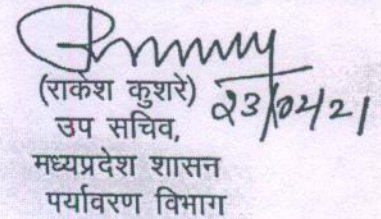 (राकेश कुशरे) 23/02/21
उप सचिव,
मध्यप्रदेश शासन
पर्यावरण विभाग